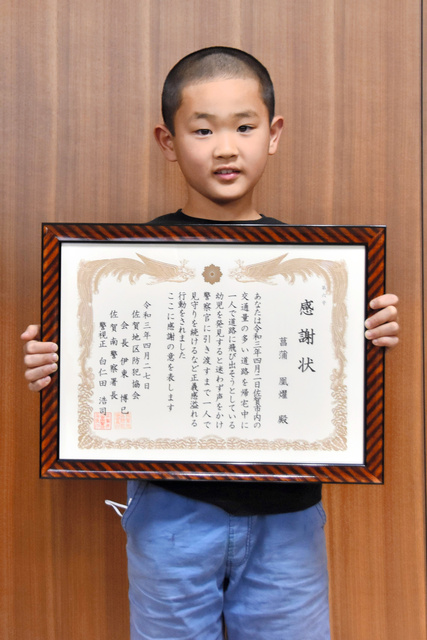 感謝状
菖蒲 凰燿 殿
あなたは令和三年四月二日佐賀市内の
交通量の多い道路を帰宅中に
一人で道路に飛び出そうとしている
幼児を発見すると迷わず声をかけ
警察官に引き渡すまで一人で
見守りを続けるなど正義感溢れる
行動をされました
ここに感謝の意を表します
令和三年四月二十七日
佐賀地区防犯協会
会長 伊東 博已
佐賀南警察署長
警視正 白仁田 浩司